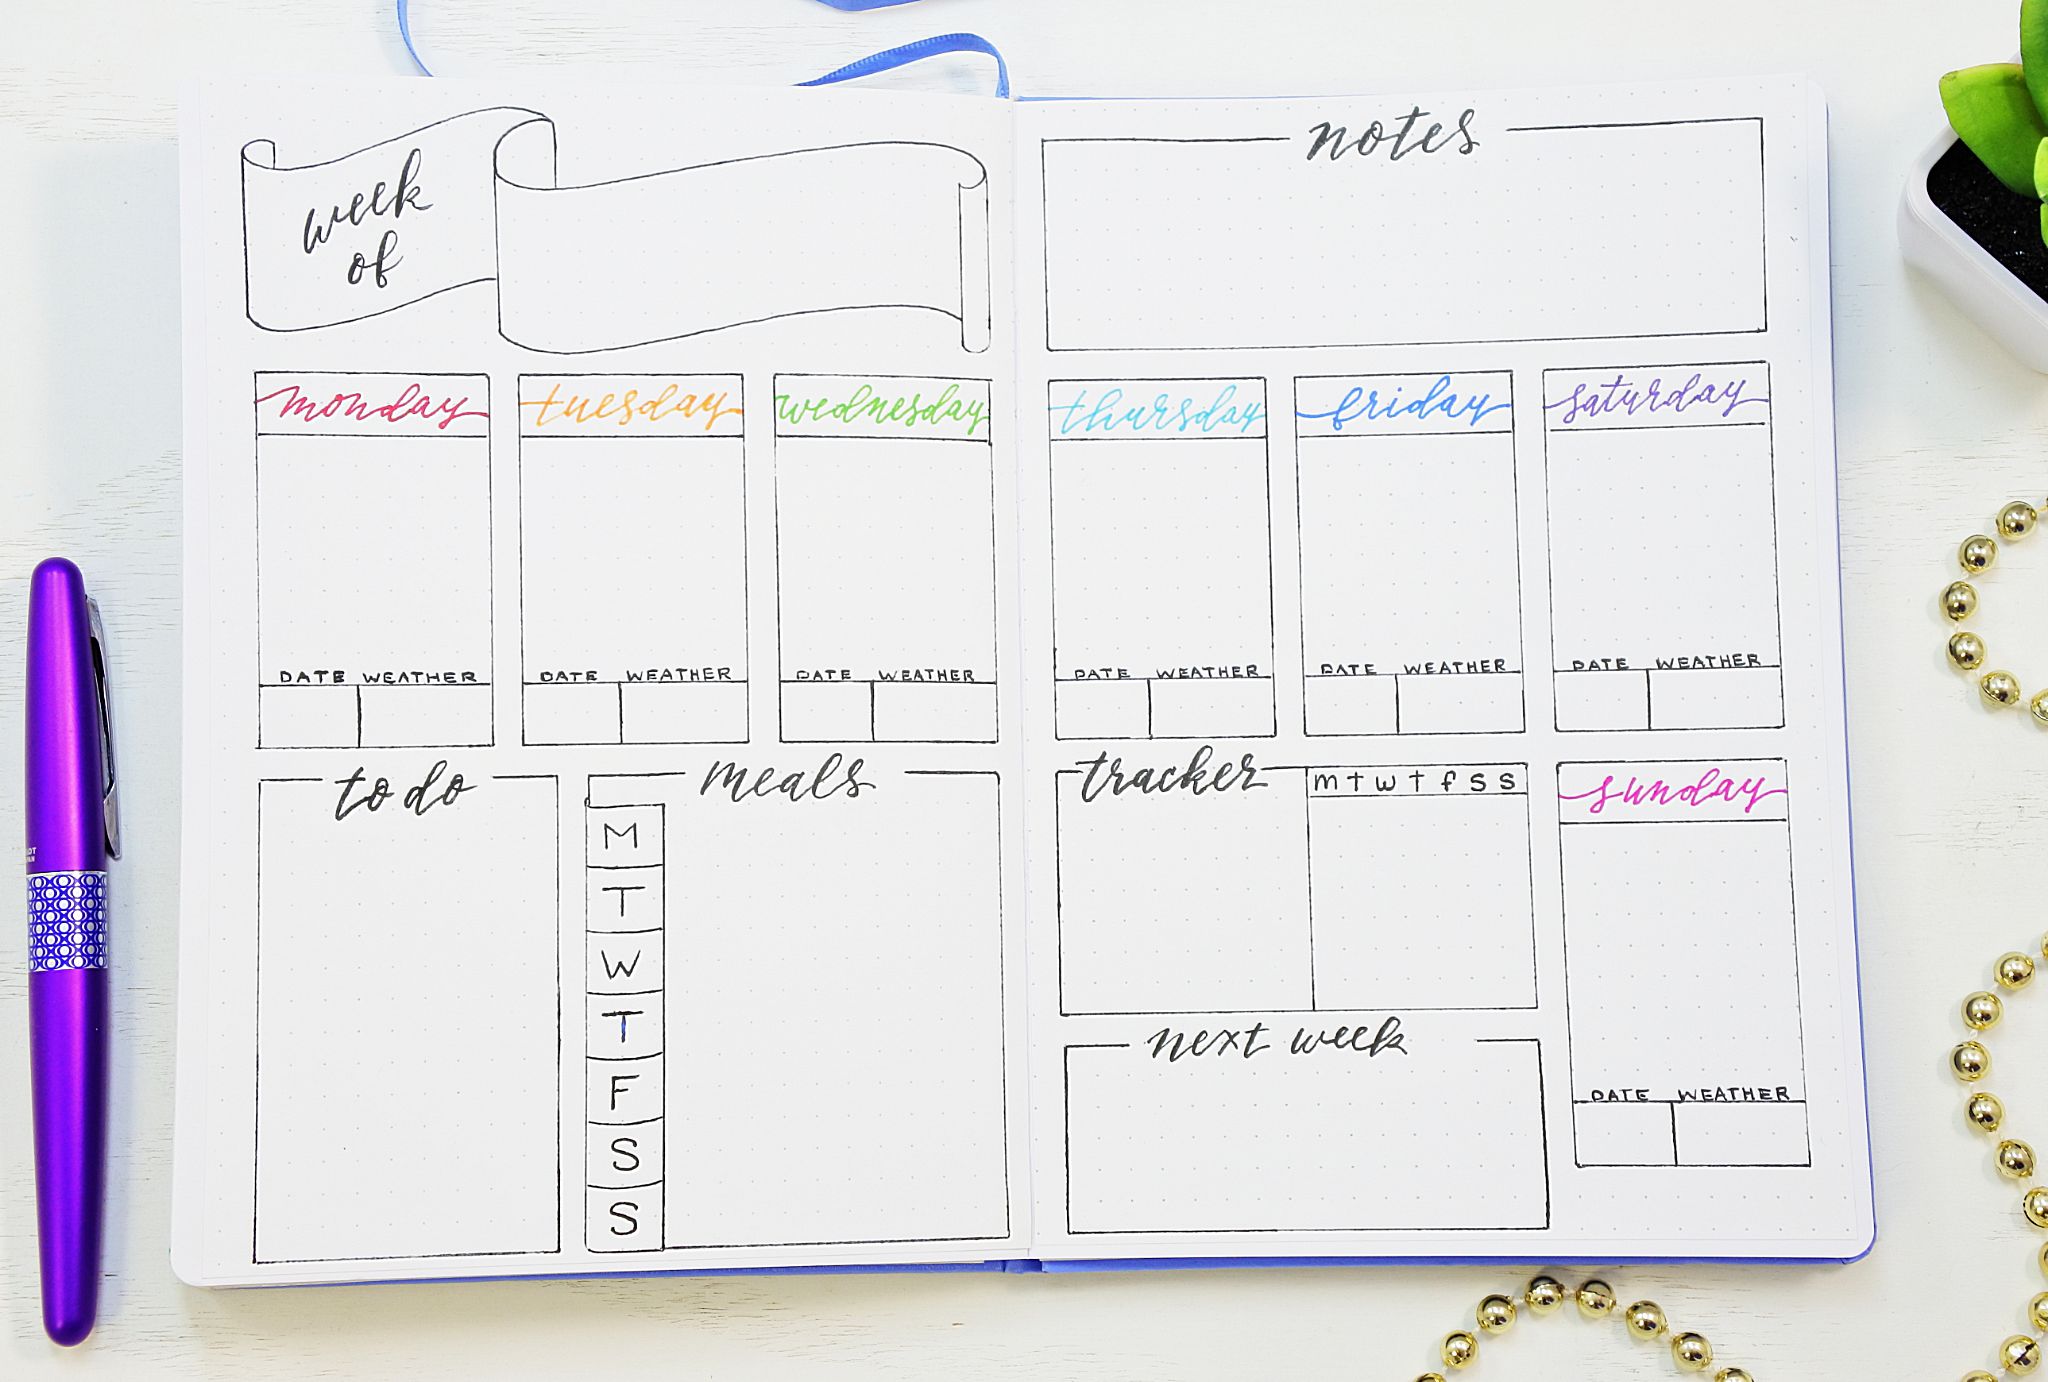 week
of
notes
monday
tuesday
wednesday
thursday
friday
saturday
DATE WEATHER
DATE WEATHER
DATE WEATHER
DATE WEATHER
DATE WEATHER
DATE WEATHER
to do
meals
M
T
W
T
F
S
S
tracker
m t w t f s s
sunday
next week
DATE WEATHER